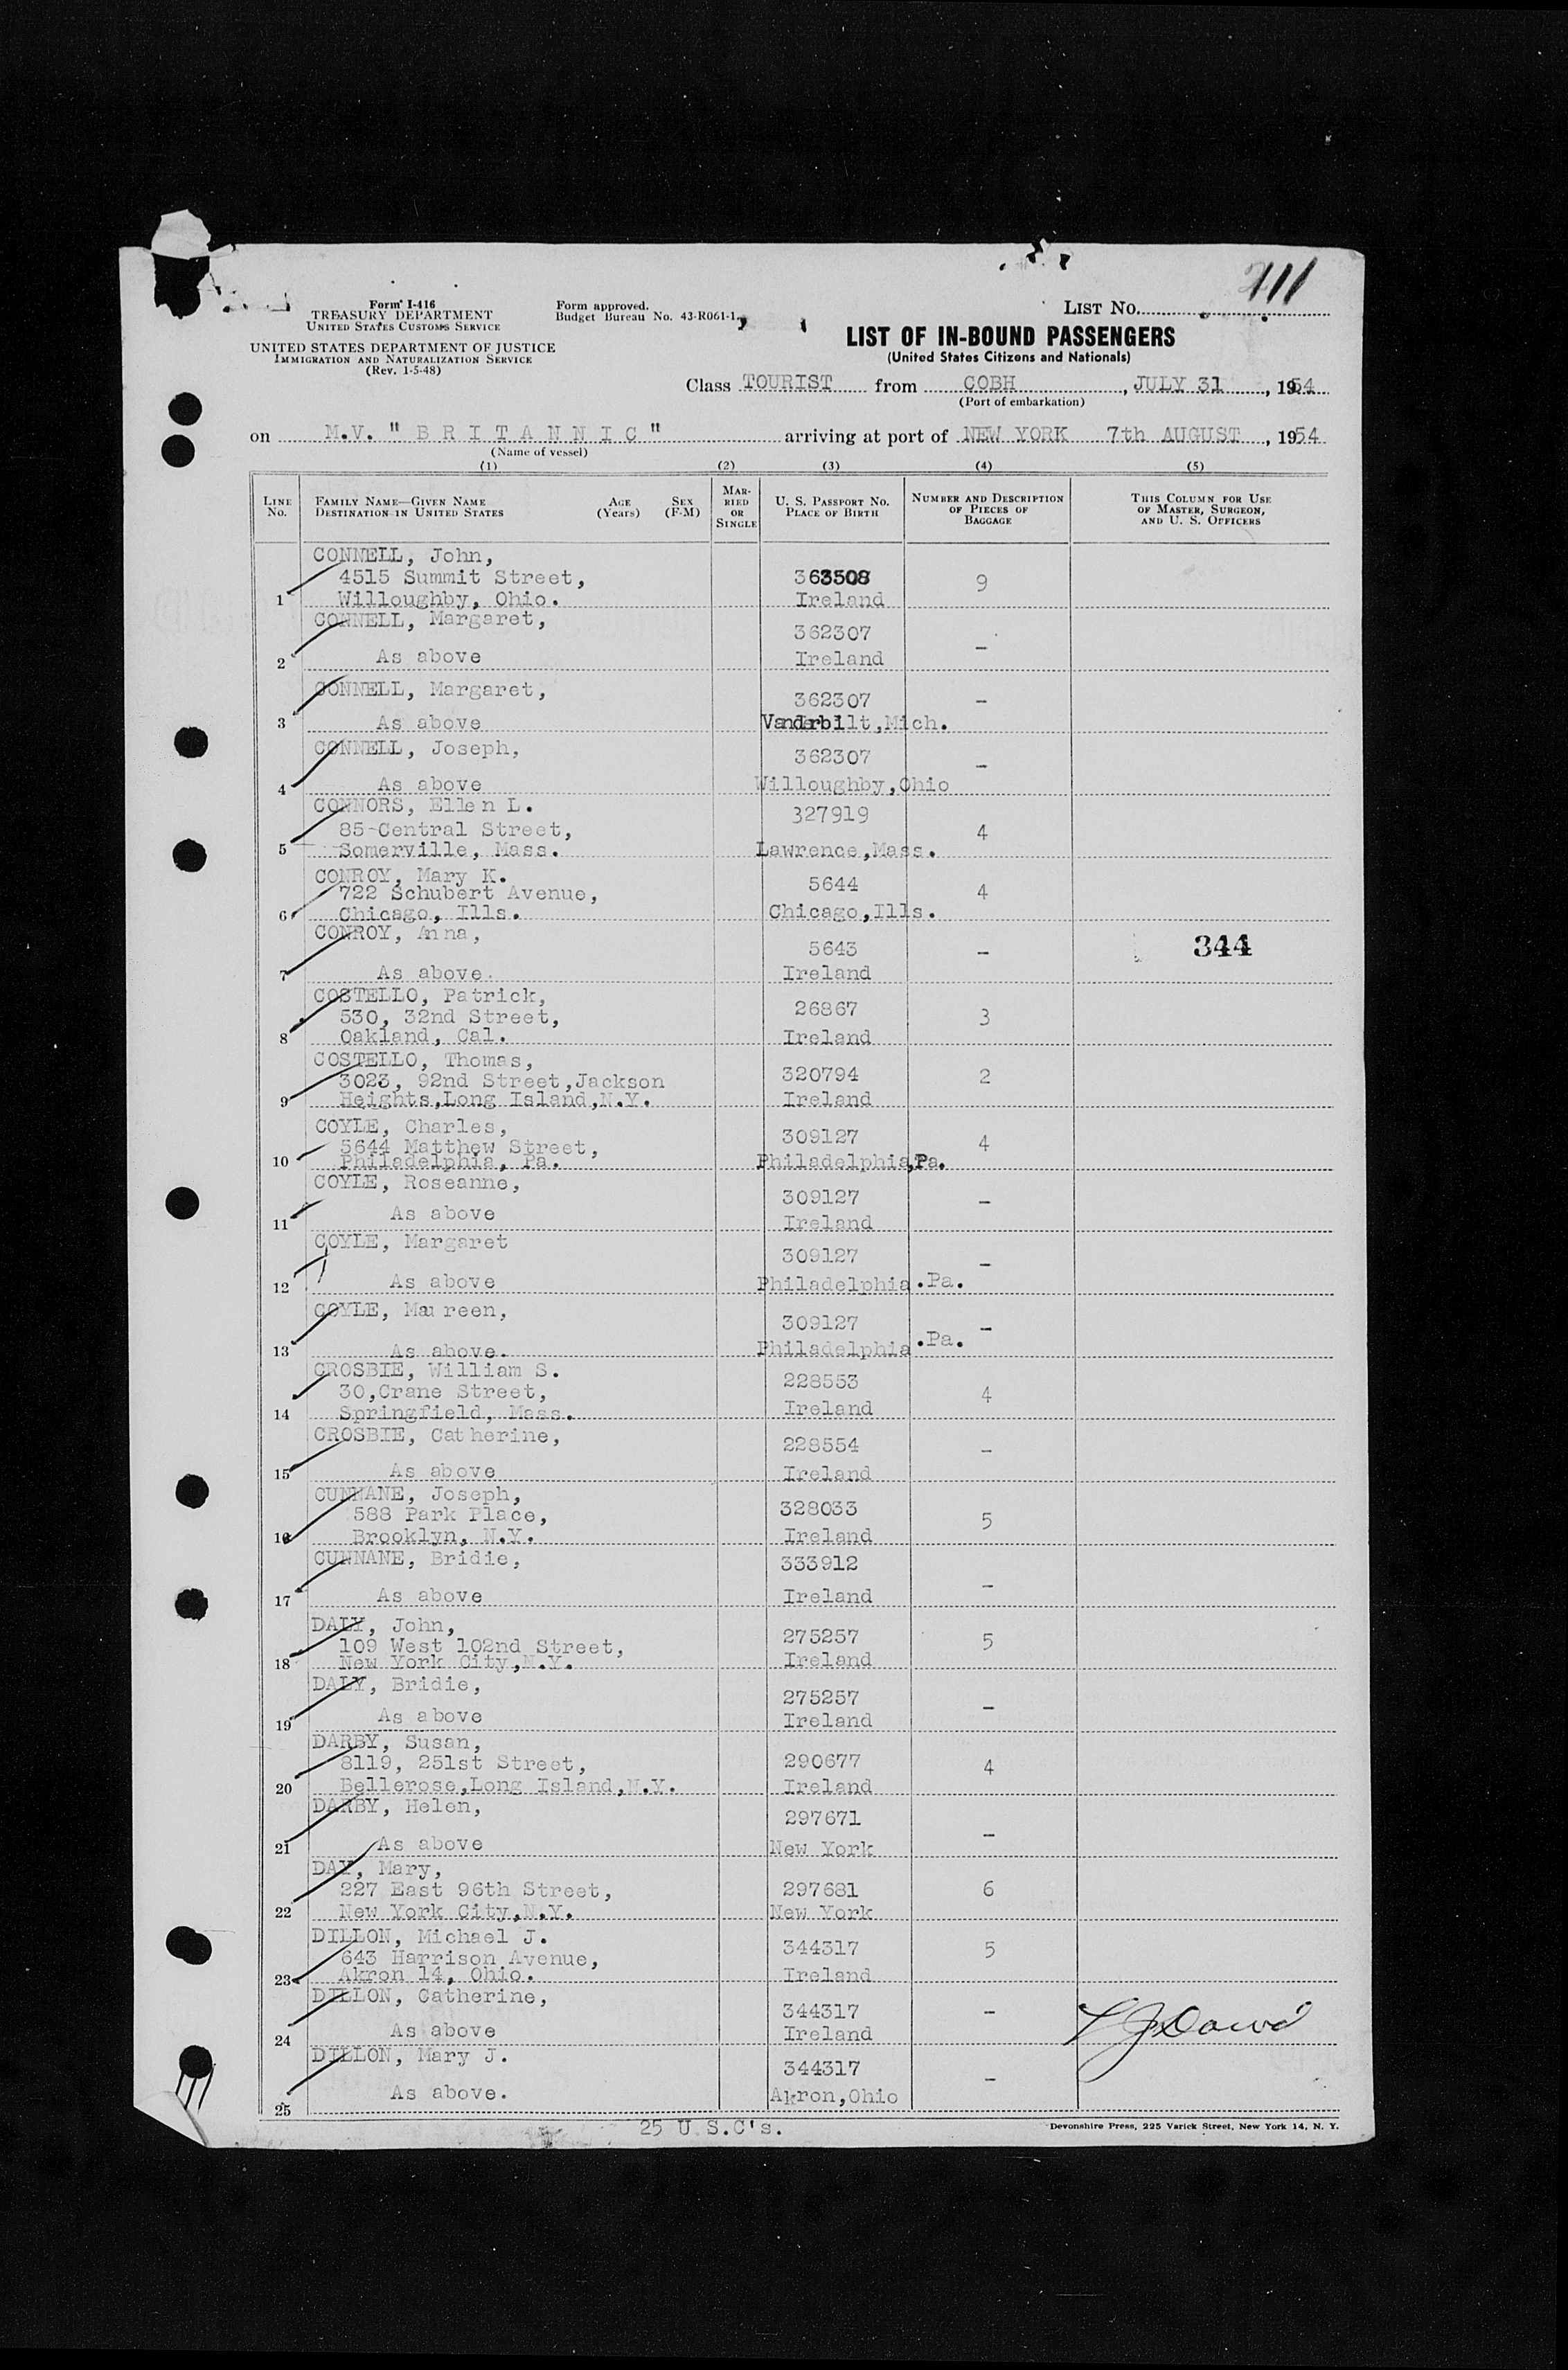 711
Form I-416
TREASURY DEPARTMENT
UNITED STATES CUSTOMS SERVICE
UNITED STATES DEPARTMENT OF JUSTICE
IMMIGRATION AND NATURALIZATION SERVICE
(Rev. 1-5-48)
Form approved.
Budget Bureau No. 43-R061-1.
LIST NO.
LIST OF IN-BOUND PASSENGERS
(United States Citizens and Nationals)
Class TOURIST from COBH, JULY 31, 1954
(Port of embarkation)
on M.V. "BRITANNIC" arriving at port of NEW YORK 7th AUGUST, 1954
(Name of vessel)
(1) (2) (3) (4) (5)
LINE NO.
FAMILY NAME—GIVEN NAME AGE (Years) SEX (F-M)
DESTINATION IN UNITED STATES
MARRIED OR SINGLE
U. S. PASSPORT NO.
PLACE OF BIRTH
NUMBER AND DESCRIPTION OF PIECES OF BAGGAGE
THIS COLUMN FOR USE OF MASTER, SURGEON, AND U. S. OFFICERS
CONNELL, John,
4515 Summit Street, 363508 9
1 Willoughby, Ohio. Ireland
CONNELL, Margaret, 362307 -
2 As above Ireland
CONNELL, Margaret, 362307 -
3 As above Vanderbilt,Mich.
CONNELL, Joseph, 362307 -
4 As above Willoughby,Ohio
CONNORS, Ellen L. 327919
85-Central Street, 4
5 Somerville, Mass. Lawrence,Mass.
CONROY, Mary K. 5644
722 Schubert Avenue, 4
6 Chicago, Ills. Chicago,Ills.
CONROY, Anna, 5643 - 344
7 As above. Ireland
COSTELLO, Patrick, 26867
530, 32nd Street, 3
8 Oakland, Cal. Ireland
COSTELLO, Thomas,
3023, 92nd Street,Jackson 320794 2
9 Heights,Long Island,N.Y. Ireland
COYLE, Charles, 309127
5644 Matthew Street, 4
10 Philadelphia, Pa. Philadelphia,Pa.
COYLE, Roseanne, 309127 -
11 As above Ireland
COYLE, Margaret 309127 -
12 As above Philadelphia.Pa.
COYLE, Maureen, 309127 -
13 As above. Philadelphia.Pa.
CROSBIE, William S. 228553
30,Crane Street, 4
14 Springfield, Mass. Ireland
CROSBIE, Catherine, 228554 -
15 As above Ireland
CUNNANE, Joseph, 328033
588 Park Place, 5
16 Brooklyn, N.Y. Ireland
CUNNANE, Bridie, 333912 -
17 As above Ireland
DALY, John, 275257
109 West 102nd Street, 5
18 New York City,N.Y. Ireland
DALY, Bridie, 275257 -
19 As above Ireland
DARBY, Susan,
8119, 251st Street, 290677 4
20 Bellerose,Long Island,N.Y. Ireland
DARBY, Helen, 297671 -
21 As above New York
DAY, Mary,
227 East 96th Street, 297681 6
22 New York City,N.Y. New York
DILLON, Michael J. 344317 5
643 Harrison Avenue,
23 Akron 14, Ohio. Ireland
DILLON, Catherine, 344317 -
24 As above Ireland
DILLON, Mary J. 344317 -
25 As above. Akron,Ohio
25 U S.C's.
Devonshire Press, 225 Varick Street, New York 14, N. Y.